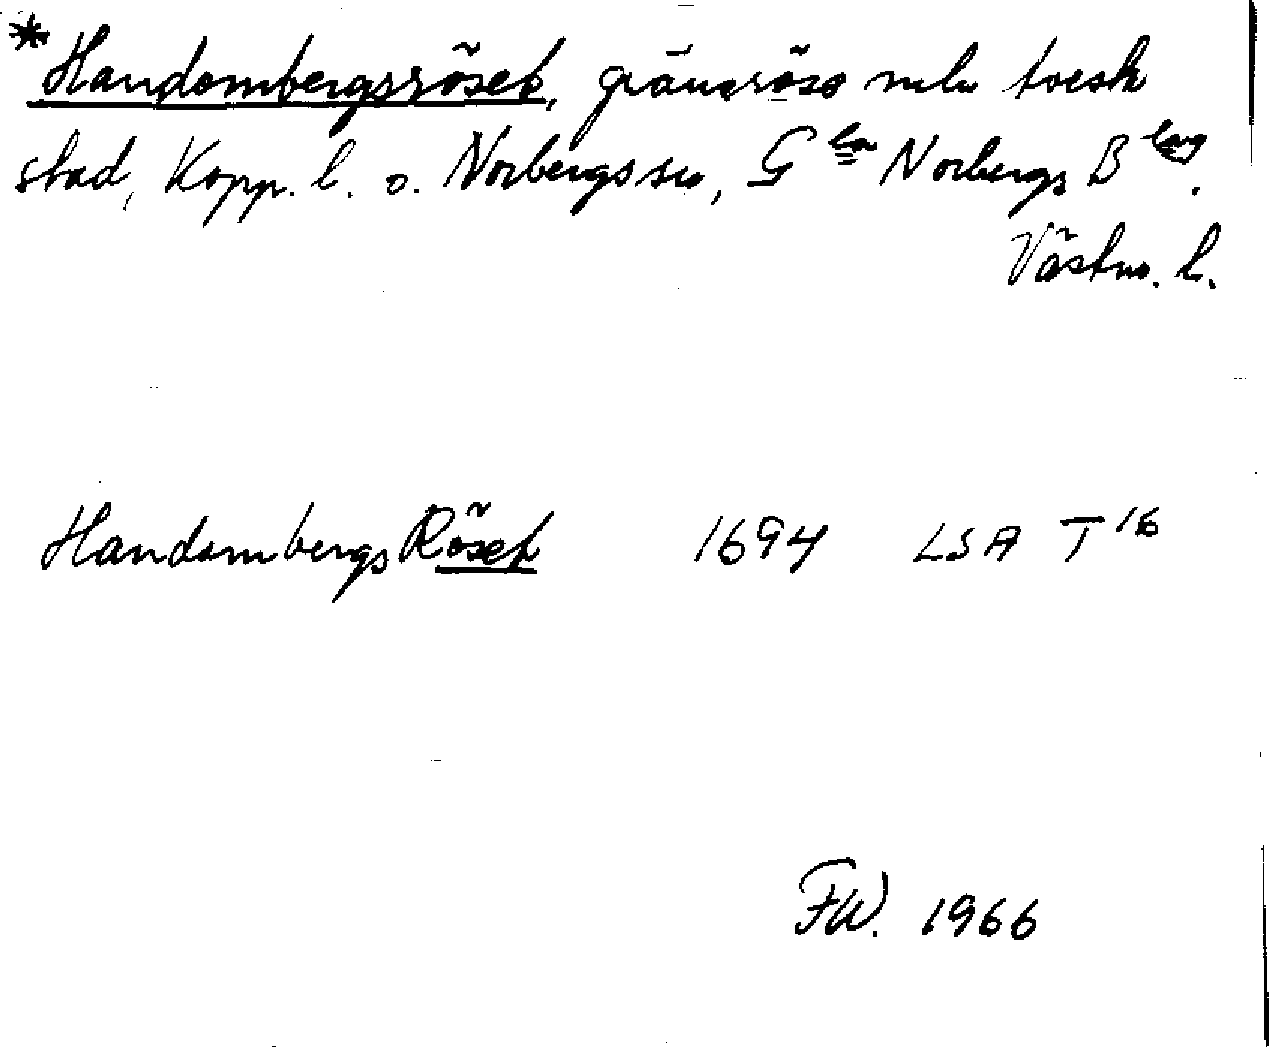 *Handombergsröset, gränsröse mln
stad, Kopp. l. o. Norbergs sn, G la Norbergs B lag.
Västm. l.
Handombergs Röset 1694 LSA T 16
FW. 1966